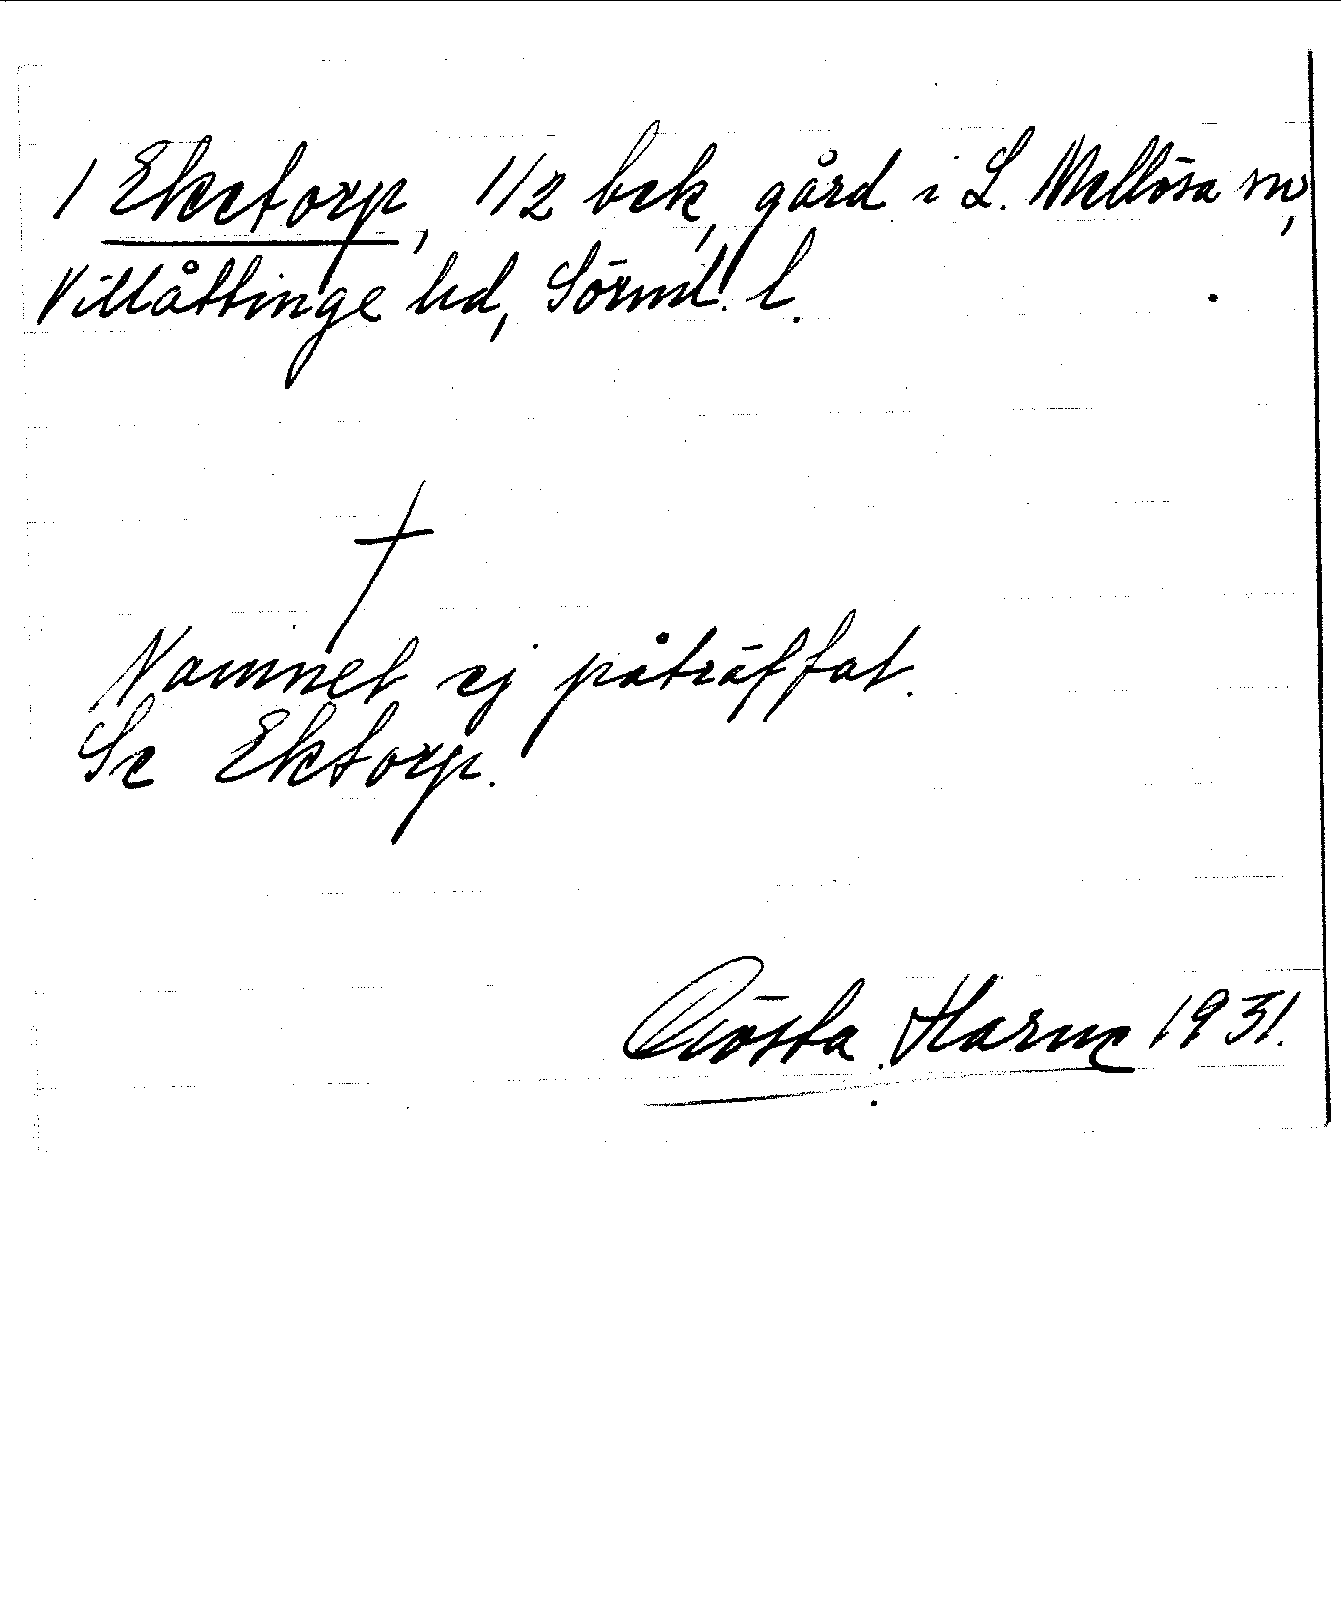 1 Eketorp, 1/2 bek, gård i L. Mellösa sn,
Villåttinge hd, Sörml. l.
†
Namnet ej påträffat.
Se Ektorp.
Gösta Harne 1931.